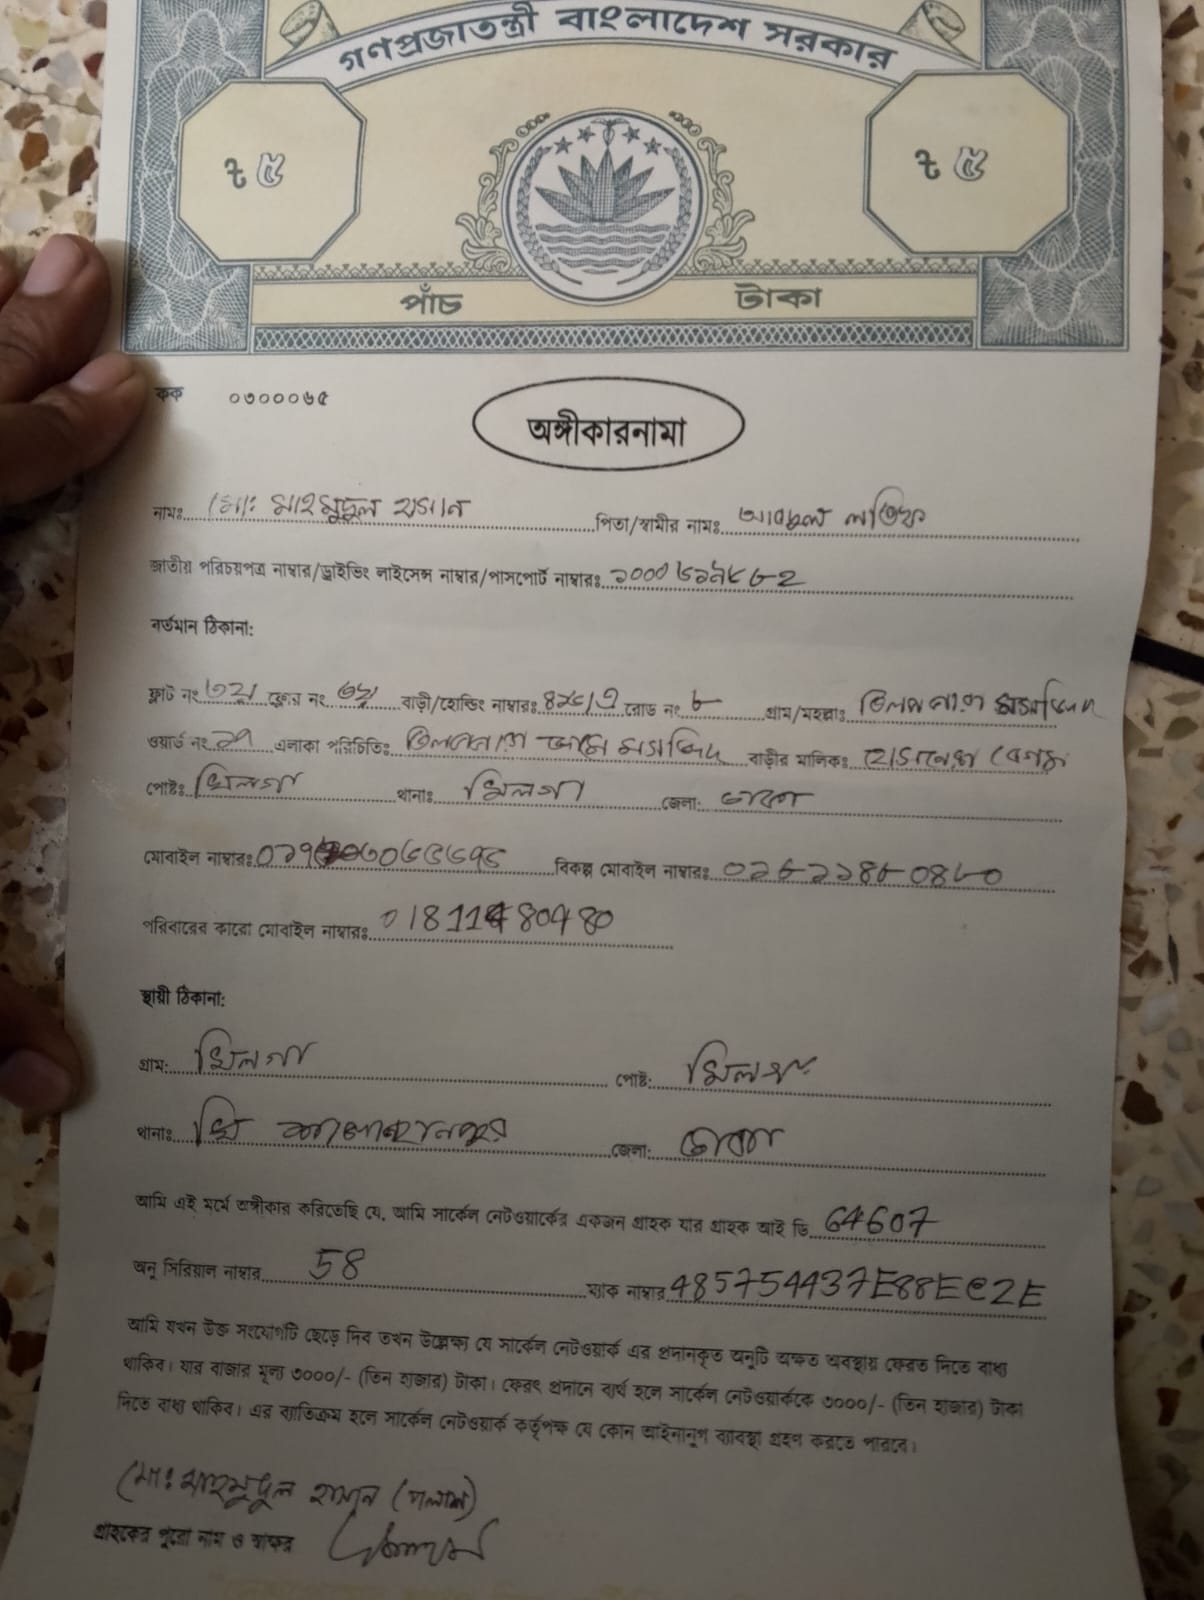 গণপ্রজাতন্ত্রী বাংলাদেশ সরকার
৳ ৫ ৳ ৫
পাঁচ টাকা
কক ০৩০০০৬৫
অঙ্গীকারনামা
নামঃ মোঃ মাহমুদুল হাসান পিতা/স্বামীর নামঃ আবদুল লতিফ
জাতীয় পরিচয়পত্র নাম্বার/ড্রাইভিং লাইসেন্স নাম্বার/পাসপোর্ট নাম্বারঃ
বর্তমান ঠিকানা:
ফ্লাট নং ফ্লোর নং বাড়ী/হোল্ডিং নাম্বারঃ রোড নং ৮ গ্রাম/মহল্লাঃ
ওয়ার্ড নং এলাকা পরিচিতিঃ জামে মসজিদ বাড়ীর মালিকঃ বেগম
পোষ্টঃ খিলগা থানাঃ খিলগা জেলা: ঢাকা
মোবাইল নাম্বারঃ বিকল্প মোবাইল নাম্বারঃ
পরিবারের কারো মোবাইল নাম্বারঃ
স্থায়ী ঠিকানা:
গ্রাম: খিলগা পোষ্ট: খিলগা
থানাঃ জেলা: ঢাকা
আমি এই মর্মে অঙ্গীকার করিতেছি যে, আমি সার্কেল নেটওয়ার্কের একজন গ্রাহক যার গ্রাহক আই ডি 64607
অনু সিরিয়াল নাম্বার 58 ম্যাক নাম্বার 485754437E88EC2E
আমি যখন উক্ত সংযোগটি ছেড়ে দিব তখন উল্লেক্ষ্য যে সার্কেল নেটওয়ার্ক এর প্রদানকৃত অনুটি অক্ষত অবস্থায় ফেরত দিতে বাধ্য
থাকিব। যার বাজার মূল্য ৩০০০/- (তিন হাজার) টাকা। ফেরৎ প্রদানে ব্যর্থ হলে সার্কেল নেটওয়ার্ককে ৩০০০/- (তিন হাজার) টাকা
দিতে বাধ্য থাকিব। এর ব্যতিক্রম হলে সার্কেল নেটওয়ার্ক কর্তৃপক্ষ যে কোন আইনানুগ ব্যাবস্থা গ্রহণ করতে পারবে।
মোঃ মাহমুদুল হাসান (পলাশ)
গ্রাহকের পুরো নাম ও স্বাক্ষর